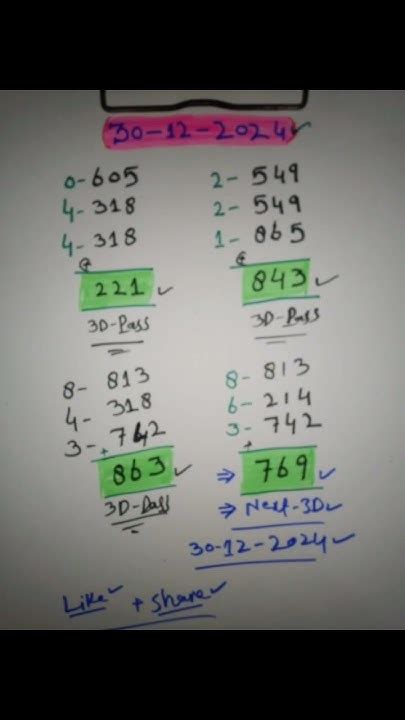 30-12-2024✓
0-605
4-318
4-318
221 ✓
3D-Pass
2-549
2-549
1-865
843 ✓
3D-Pass
8-813
4-318
3-742
+
863 ✓
3D-Pass
8-813
6-214
3-742
+
⇒ 769 ✓
⇒ Next-3D✓
30-12-2024✓
Like✓ + Share✓